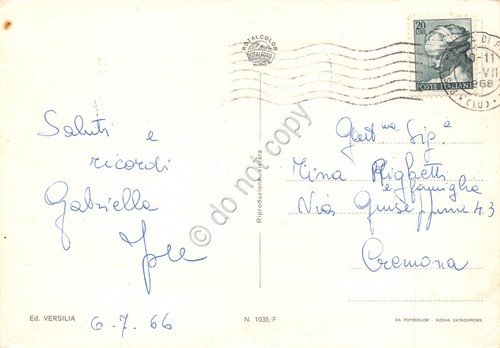 ROTALCOLOR
ROTALFOTO
20
LIRE
POSTE ITALIANE
DI
-11
VII
966
(LU)
Saluti e
ricordi
Gabriella
6-7.66
Gent.ma Sig.a
Mina Righetti
e famiglia
Via 43
Cremona
Riproduzione vietata
© do not copy
Ed. VERSILIA
N. 1035/F
DA FOTOCOLOR - KODAK EKTACHROME